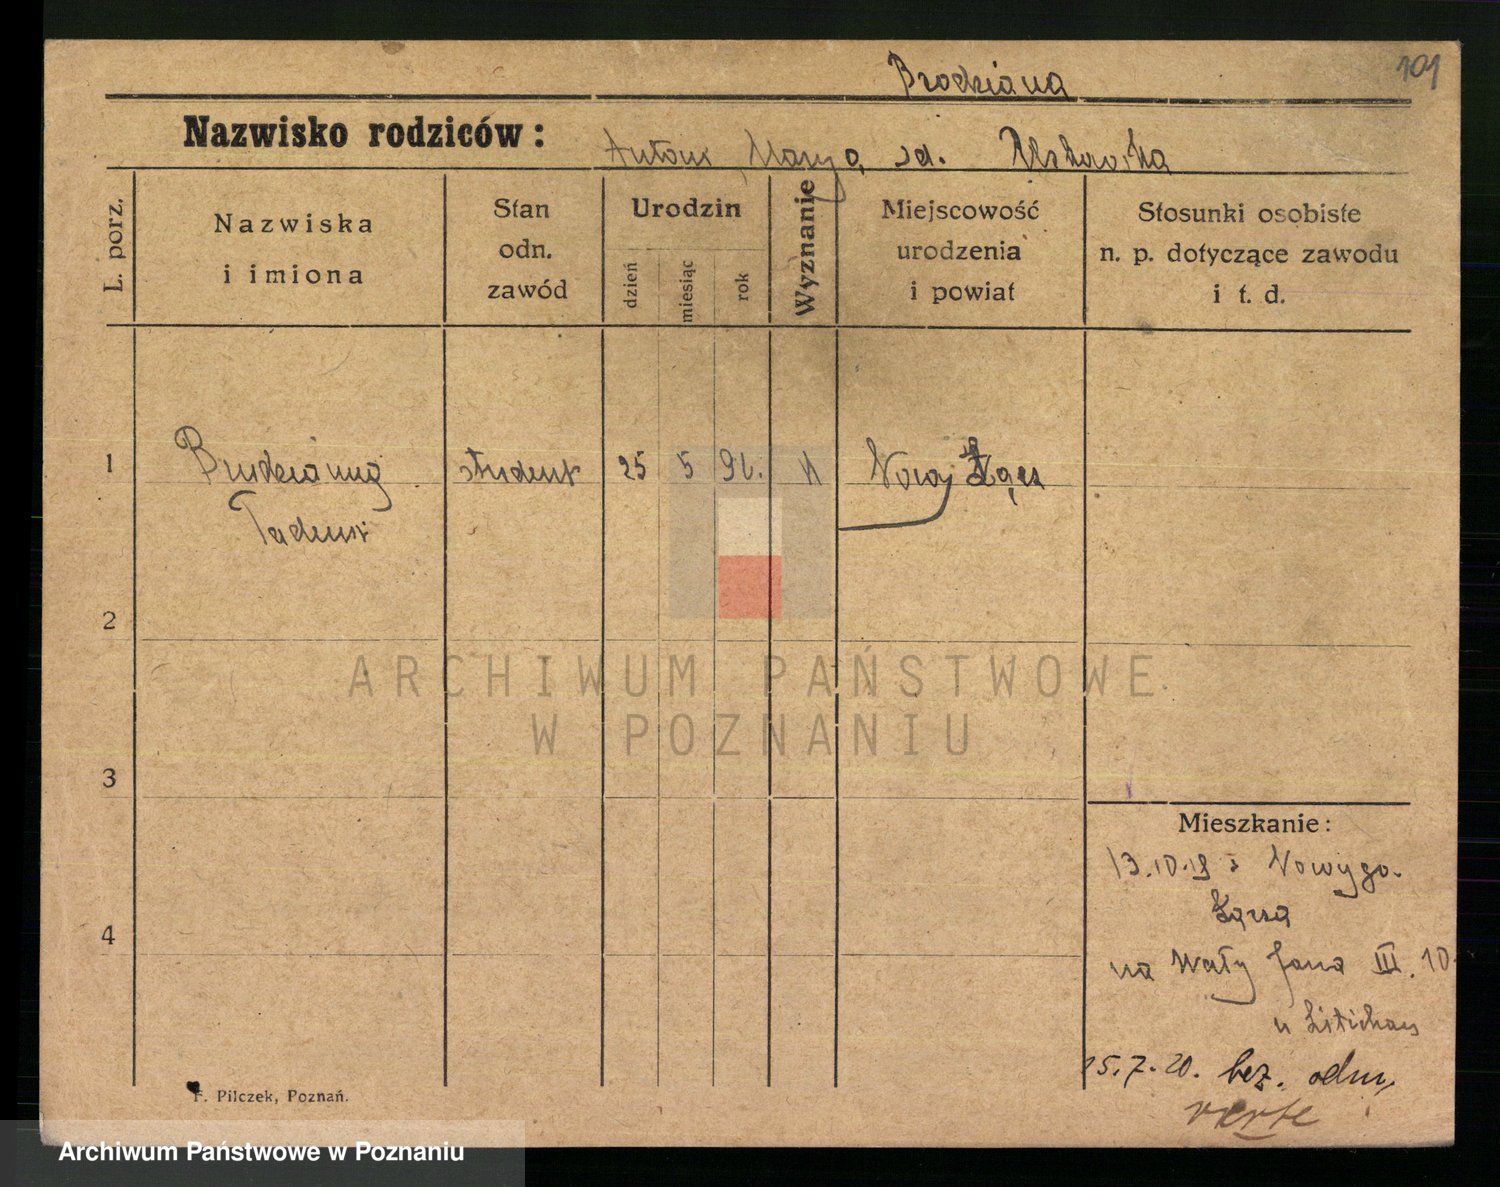 101
Brodziana
Nazwisko rodziców: Antoni Marya zd.
L. porz.
Nazwiska
i imiona
Stan
odn.
zawód
Urodzin
dzień
miesiąc
rok
Wyznanie
Miejscowość
urodzenia
i powiat
Stosunki osobiste
n. p. dotyczące zawodu
i t. d.
1
student 25 5 Nowy Sącz
Tadeusz
2
ARCHIWUM PAŃSTWOWE
W POZNANIU
3
Mieszkanie:
13.10.19 z Nowygo.
Sącza
4
na Wały Jana III. 10
u
15.7.20. bez. odm.
verte
F. Pilczek, Poznań.
Archiwum Państwowe w Poznaniu